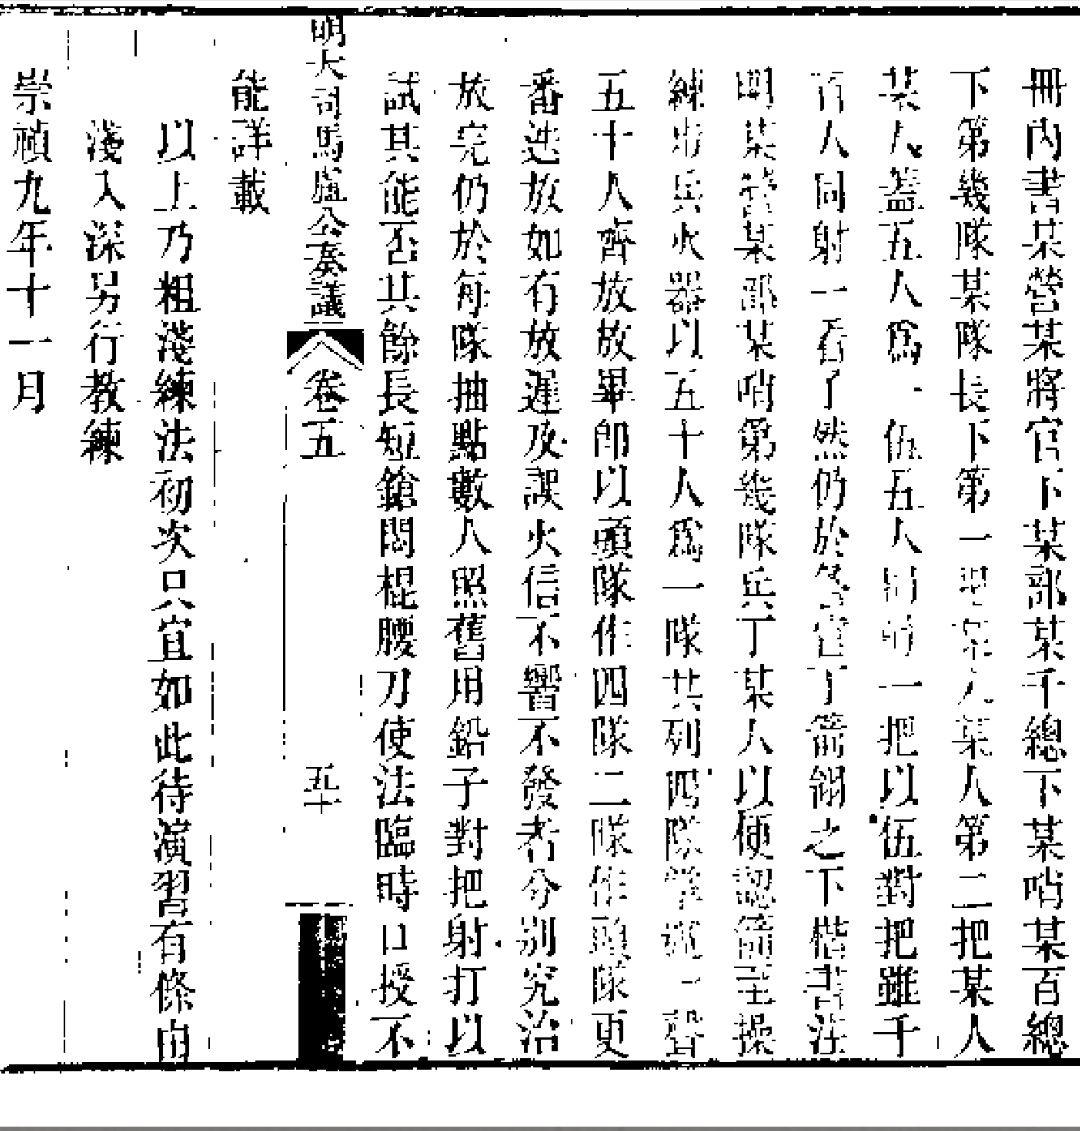 冊內書某營某將官下某部某千總下某哨某百總
下第幾隊某隊長下第一把某人某人第二把某人
某人蓋五人爲一伍五人同射一把以伍對把雖千
百人同射一看了然仍於各官丁箭翎之下楷書注
明某營某部某哨第幾隊兵丁某人以便認箭至操
練步兵火器以五十人爲一隊共列四隊掌號一聲
五十人齊放放畢卽以頭隊作四隊二隊作頭隊更
番迭放如有放遲及誤火信不響不發者分別究治
放完仍於每隊抽點數人照舊用鉛子對把射打以
試其能否其餘長短鎗悶棍腰刀使法臨時口授不
明大司馬盧公奏議 卷五 五十
能詳載
以上乃粗淺練法初次只宜如此待演習有條由
淺入深另行教練
崇禎九年十一月